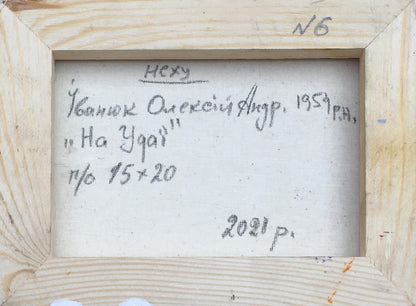 N6
неху
Іванюк Олексій Андр. 1959 р.н.
„На Удаї"
п/о 15×20
2021 р.